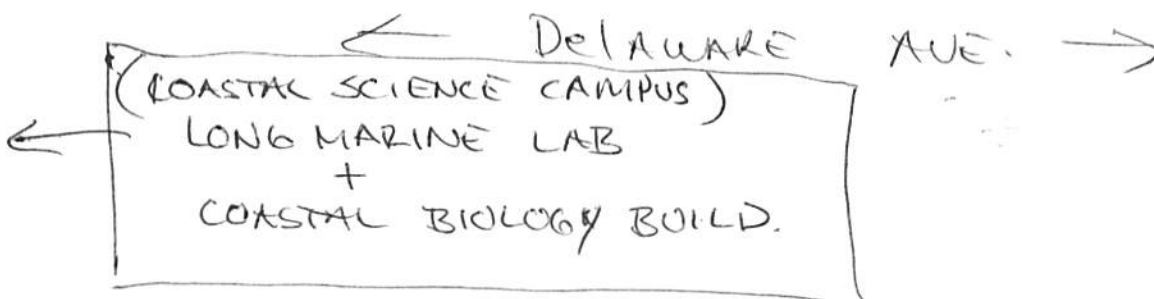 ← DelAWARE AVE. →
(COASTAL SCIENCE CAMPUS)
← LONG MARINE LAB
+
COASTAL BIOLOGY BUILD.